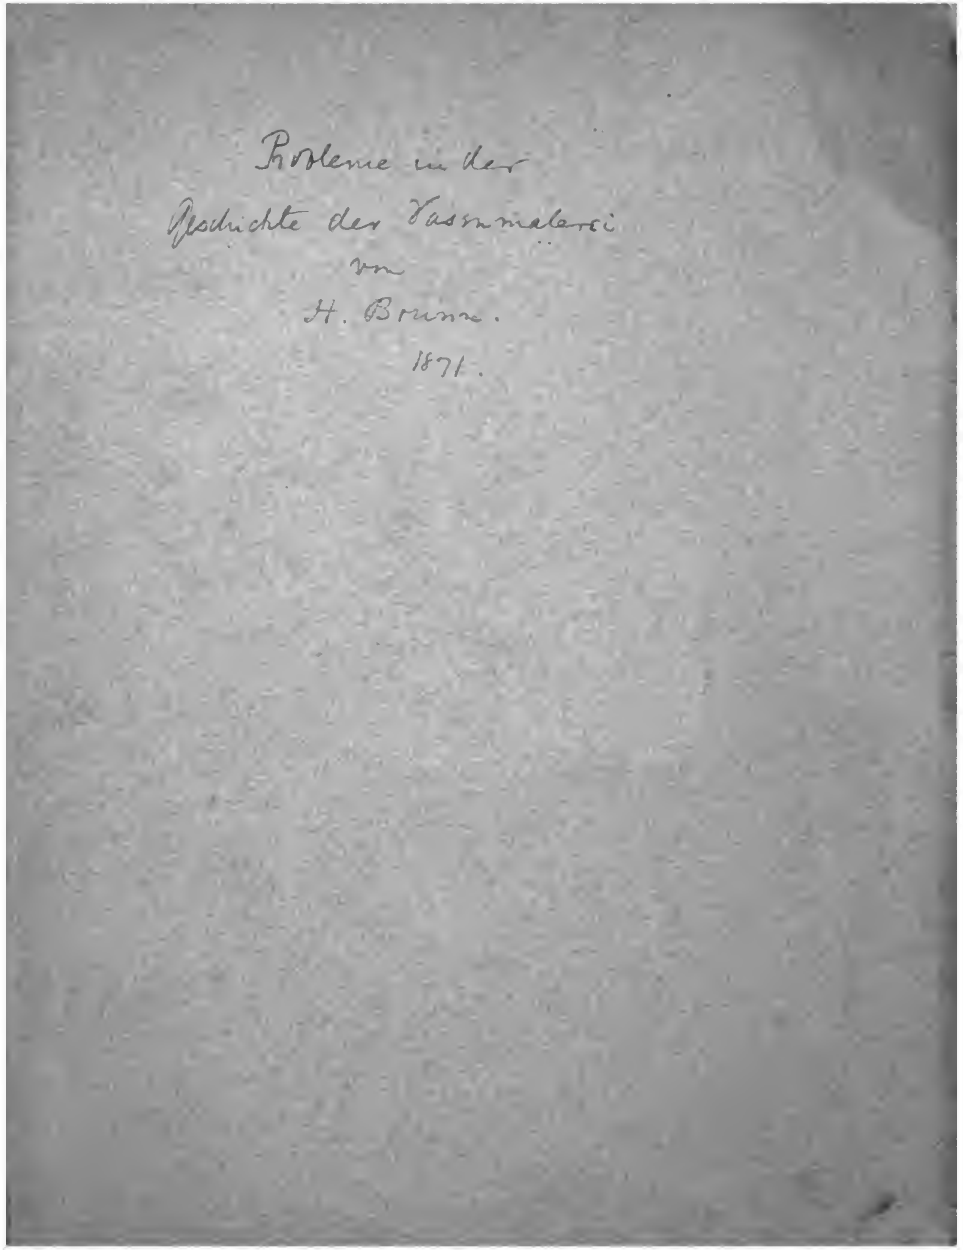 Probleme in der
Geschichte der Vasenmalerei
von
H. Brunn.
1871.